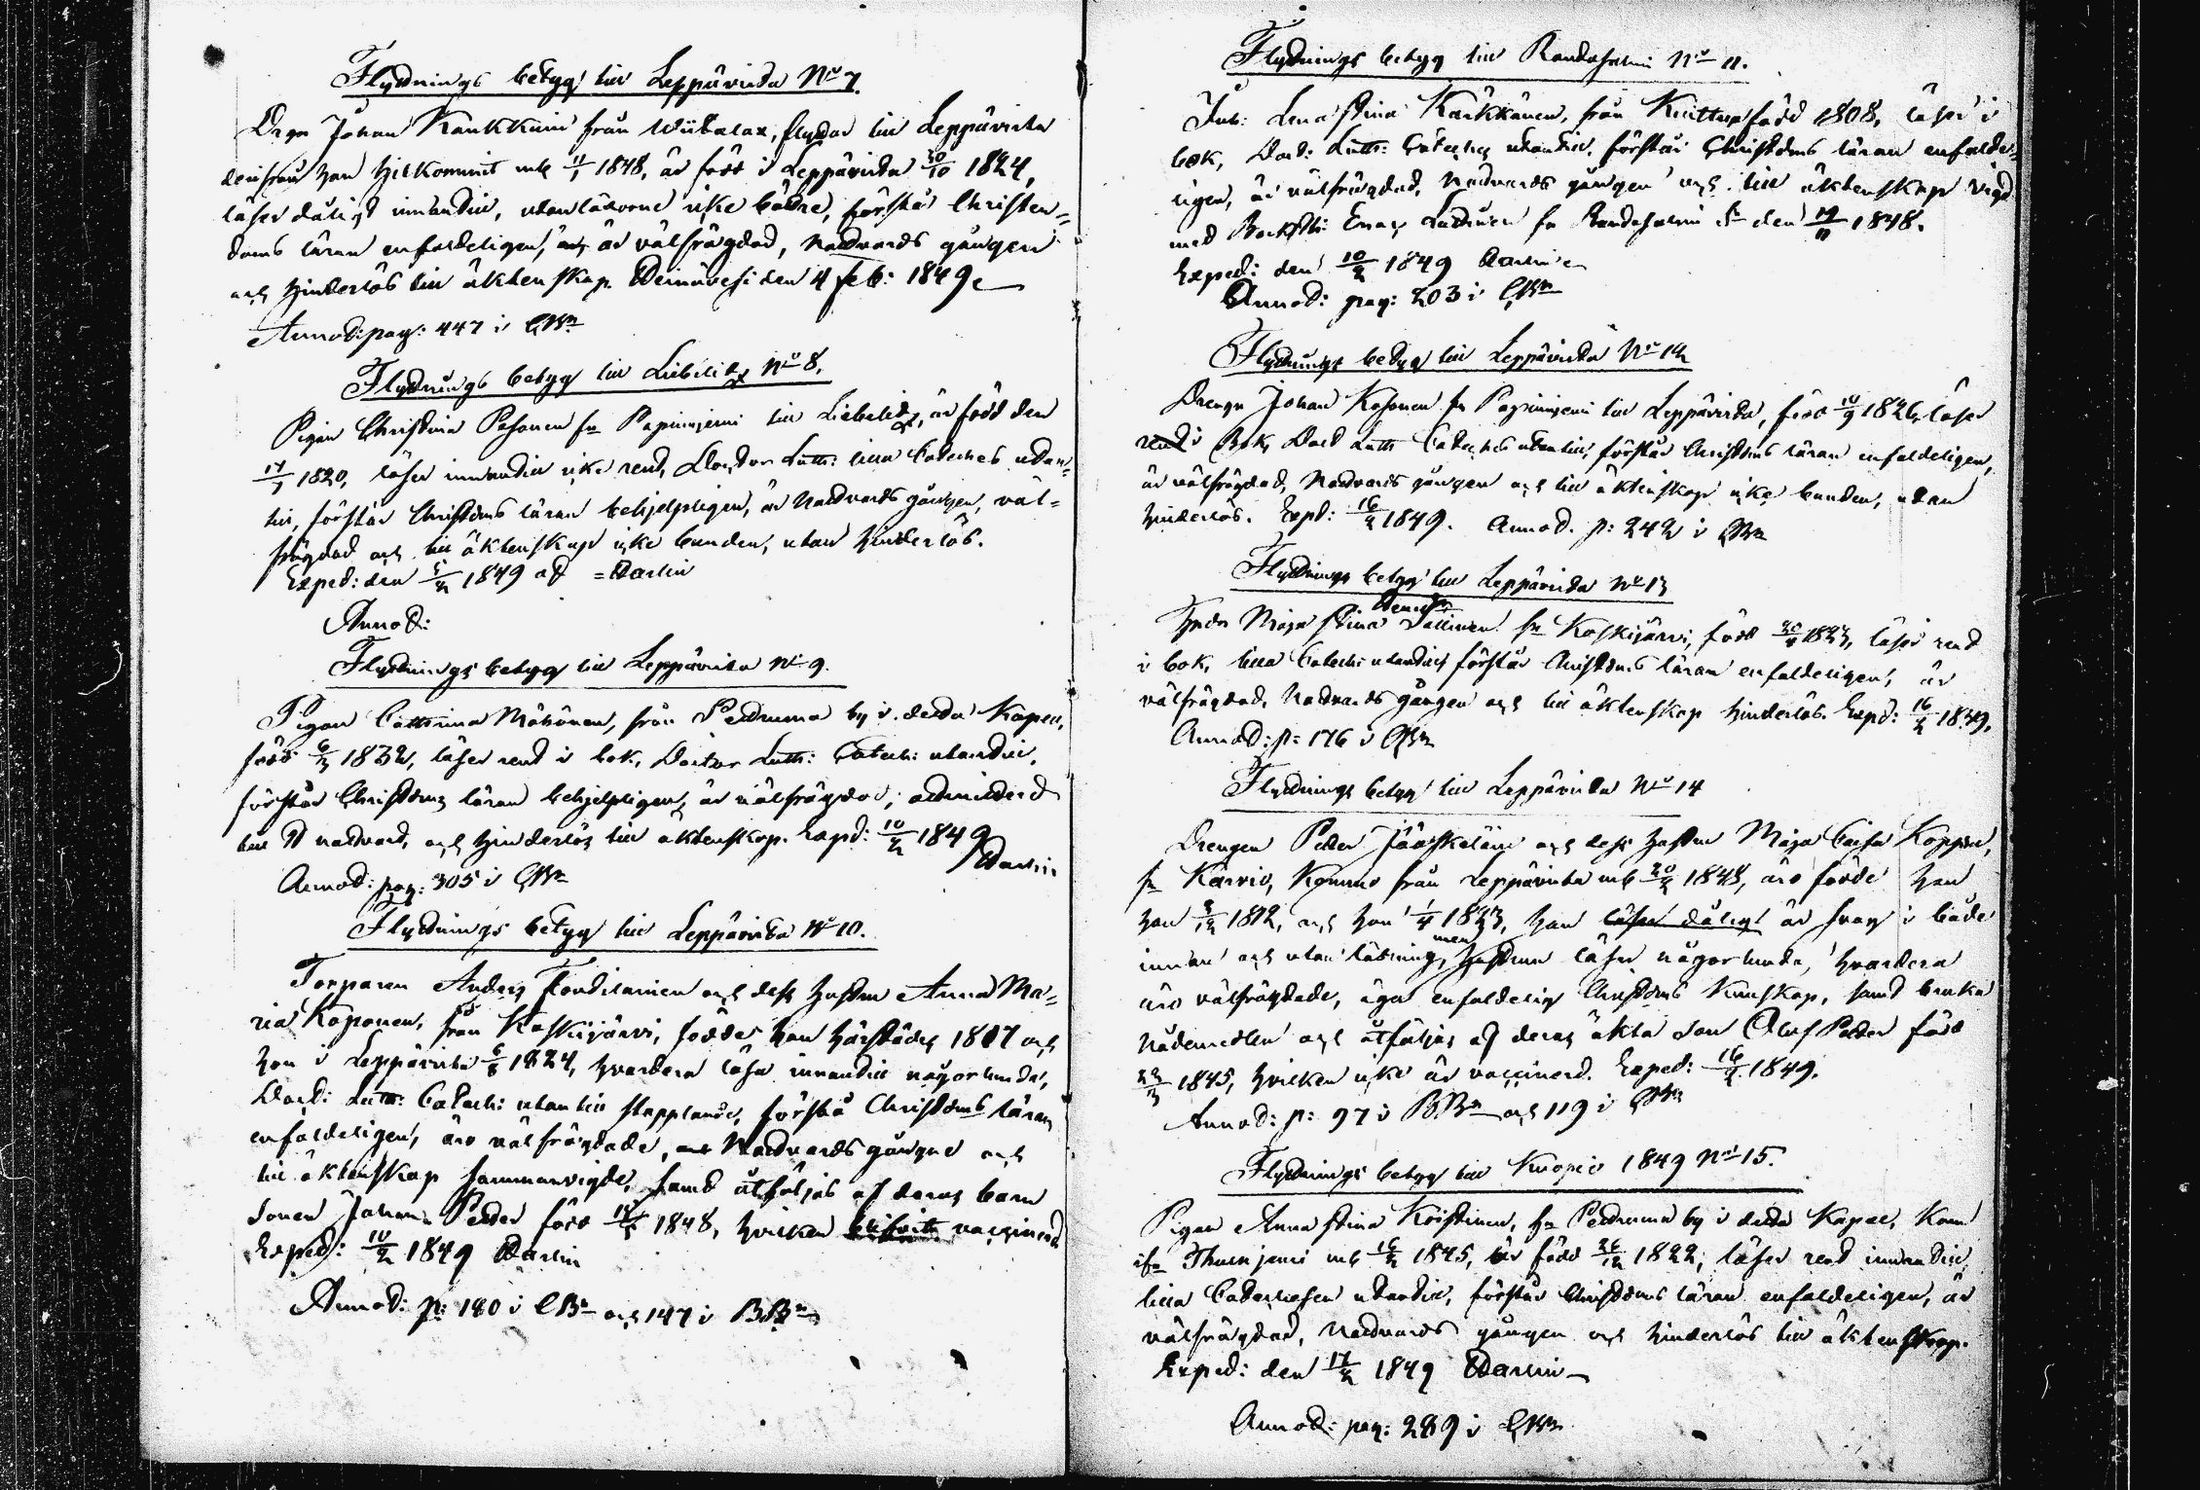 Flyttnings betyg till Leppävirta No 7.
Drgn Johan Kaukkuin från Wiitalax, flyttar till Leppävirta
derifrån han hitkommit enl 11/1 1848, är född i Leppävirta 30/10 1824,
läser dåligt innantill, utanläxorne icke bättre, förstår Christen=
doms läran enfaldeligen, är välfrägdad, Nattvards gången
och hinderlös till äktenskap den 4 feb: 1849
Annot: pag: 447 i CBn
Flyttnings betyg till Libelitz No 8.
Pigan Christina Pasonen fn Papinjemi till Liebelitz, är född den
17/7 1820, läser innantill icke rent, Doctor Luth: lilla Cateches utan=
till, förstår Christdms läran behjelpligen, är Nattvards gången, väl=
frägdad och till äktenskap icke bunden, utan hinderlös.
Exped: den 5/2 1849 af = Warlin
Annot:
Flyttnings betyg till Leppävirta No 9.
Pigan Cathrina Mähönen, från Pettruma by i detta Kapell,
född 6/2 1832, läser rent i bok, Doctor Luth: Catech: utantill,
förstår Christdms läran behjelpligen, är välfrägdad, admitterd
till H nattvard, och hinderlös till äktenskap. Exped: 10/2 1849
Warlin
Annot: pag: 305 i CBn
Flyttnings betyg till Leppävirta No 10.
Torparen Anders och dess hustru Anna Ma=
ria Koponen, från Koskijärvi, födde, han härstädes 1817 och
hon i Leppävirta 6/8 1824, hvardera läsa innantill någorlunda,
Doct: Luth: Catech: utantill stapplande, förstå Christdoms läran
enfaldeligen, äro välfrägdade, Nattvards gångne och
till äktenskap sammanvigde, samt åtföljas af deras barn
Sonen Johan Petter född 1848, hvilken vaccinerd
Exped: 10/2 1849 Warlin
Annot: p: 180 i CBn och 147 i BBn
Flyttnings betyg till Randasalmi No 11.
Inh: Lena Stina Kärkkänen, från Kuittua född 1808, läser i
bok, Doct: Luth: Cateches utantill, förstår Christdms läran enfalde=
ligen, är välfrägdad, Nattvards gången och till äktenskap vigd
med fn Randasalmi den 19/11 1848.
Exped: den 10/2 1849 Warlin
Annot: pag: 203 i CBn
Flyttnings betyg till Leppävirta No 12
Drengn Johan Kosonen fn Papinjemi till Leppävirta, född 10/9 1826, läser
rent i Bok, Doct Luth Cateches utantill, förstår Christdms läran enfaldeligen,
är välfrägdad, Nattvards gången och till äktenskap icke bunden, utan
hinderlös. Exped: 16/2 1849. Annot. p: 242 i CBn
Flyttnings betyg till Leppävirta No 13
Maja Stina Tallinen fn Koskijärvi, född 1823, läser rent
i bok, lilla Catech: utantill förstår Christdms läran enfaldeligen, är
välfrägdad, Nattvards gången och till äktenskap hinderlös. Exped: 16/2 1849.
Annot: p: 176 i CBn
Flyttnings betyg till Leppävirta No 14
Drengen Petter Jääskeläin och dess hustru Maja Caisa Koppen,
fn Kärvis, Komne från Leppävirta enl 20/2 1848, äro födde han
han 3/12 1812, och hon 1/4 1823, han läser dåligt är svag i både
innan och utan läsning, men hustrun läser någorlunda, hvardera
äro välfrägdade, äga enfaldelig Christdoms Kunskap, samt bruka
nådemedlen och åtföljas af deras äkta son Olof Petter född
1845, hvilken icke är vaccinerd. Exped: 16/2 1849.
Annot: p: 97 i BBn och 119 i CBn
Flyttnings betyg till Kuopio 1849 No 15.
Pigan Anna Stina Kristinen, fn Pettruma by i detta Kapell, Kom
ifn Thusnjemi enl 16/2 1845, är född 26/12 1822, läser rent innantill,
lilla Catechesen utantill, förstår Christdoms läran enfaldeligen, är
välfrägdad, Nattvards gången och hinderlös till äktenskap.
Exped: den 17/2 1849 Warlin
Annot: pag: 289 i CBn